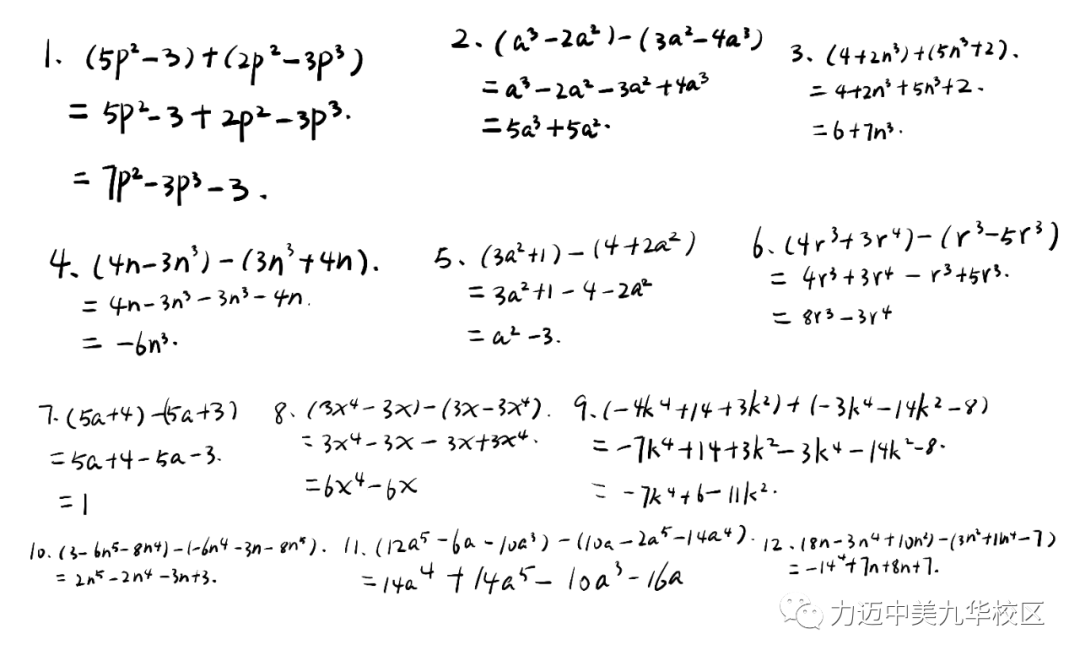 1. (5p²-3)+(2p²-3p³)
= 5p²-3+2p²-3p³.
= 7p²-3p³-3.
2、(a³-2a²)-(3a²-4a³)
=a³-2a²-3a²+4a³
=5a³+5a².
3、(4+2n³)+(5n³+2).
=4+2n³+5n³+2.
=6+7n³.
4、(4n-3n³)-(3n³+4n).
=4n-3n³-3n³-4n.
= -6n³.
5、(3a²+1)-(4+2a²)
=3a²+1-4-2a²
=a²-3.
6、(4r³+3r⁴)-(r³-5r³)
= 4r³+3r⁴-r³+5r³.
= 8r³-3r⁴
7.(5a+4)-(5a+3)
=5a+4-5a-3.
=1
8、(3x⁴-3x)-(3x-3x⁴).
=3x⁴-3x-3x+3x⁴.
=6x⁴-6x
9、(-4k⁴+14+3k²)+(-3k⁴-14k²-8)
=-7k⁴+14+3k²-3k⁴-14k²-8.
= -7k⁴+6-11k².
10.(3-6n⁵-8n⁴)-(-6n⁴-3n-8n⁵).
=2n⁵-2n⁴-3n+3.
11.(12a⁵-6a-10a³)-(10a-2a⁵-14a⁴).
=14a⁴+14a⁵-10a³-16a
12、(8n-3n⁴+10n²)-(3n²+11n⁴-7)
=-14⁴+7n+8n+7.
力迈中美九华校区